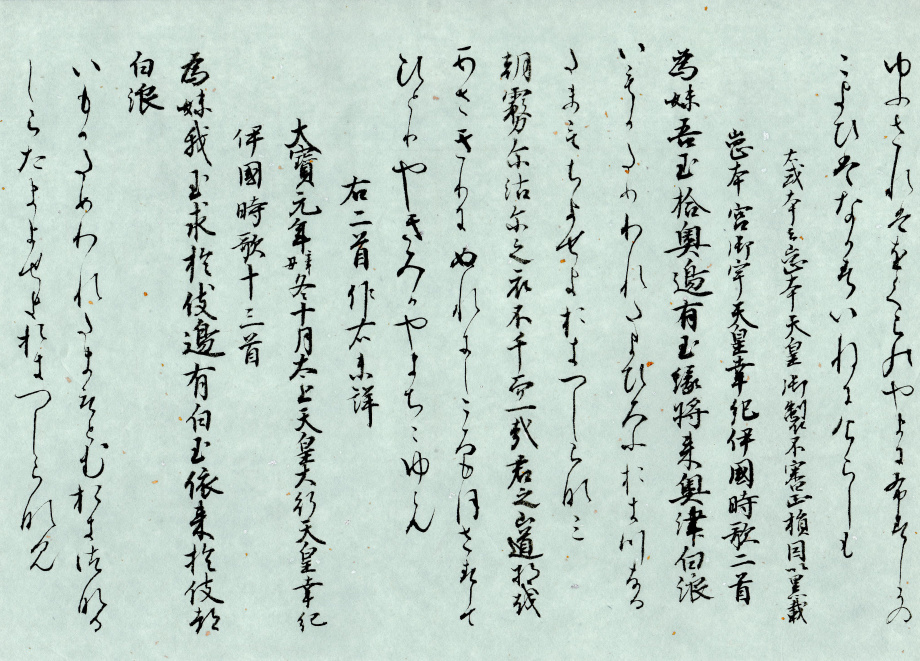 ゆふされはをくらのやまにふすしかの
こよひはなかすいねにけらしも
右或本云崗本天皇御製不審正指因以累載
崗本宮御宇天皇幸紀伊國時歌二首
為妹吾玉拾奥邊有玉縁将来奥津白浪
いもかためわれたまひろふおきつなる
たまもちよせよおきつしらなみ
朝霧尓沾尓之衣不干而一哉君之山道将越
あさきりにぬれにしころもほさすして
ひとりやきみかやまちこゆらん
右二首作者未詳
大寶元年辛丑冬十月太上天皇大行天皇幸紀
伊國時歌十三首
為妹我玉求於伎邊有白玉依来於伎都
白浪
いもかためわれたまもとむおきつなる
しらたまよせよおきつしらなみ